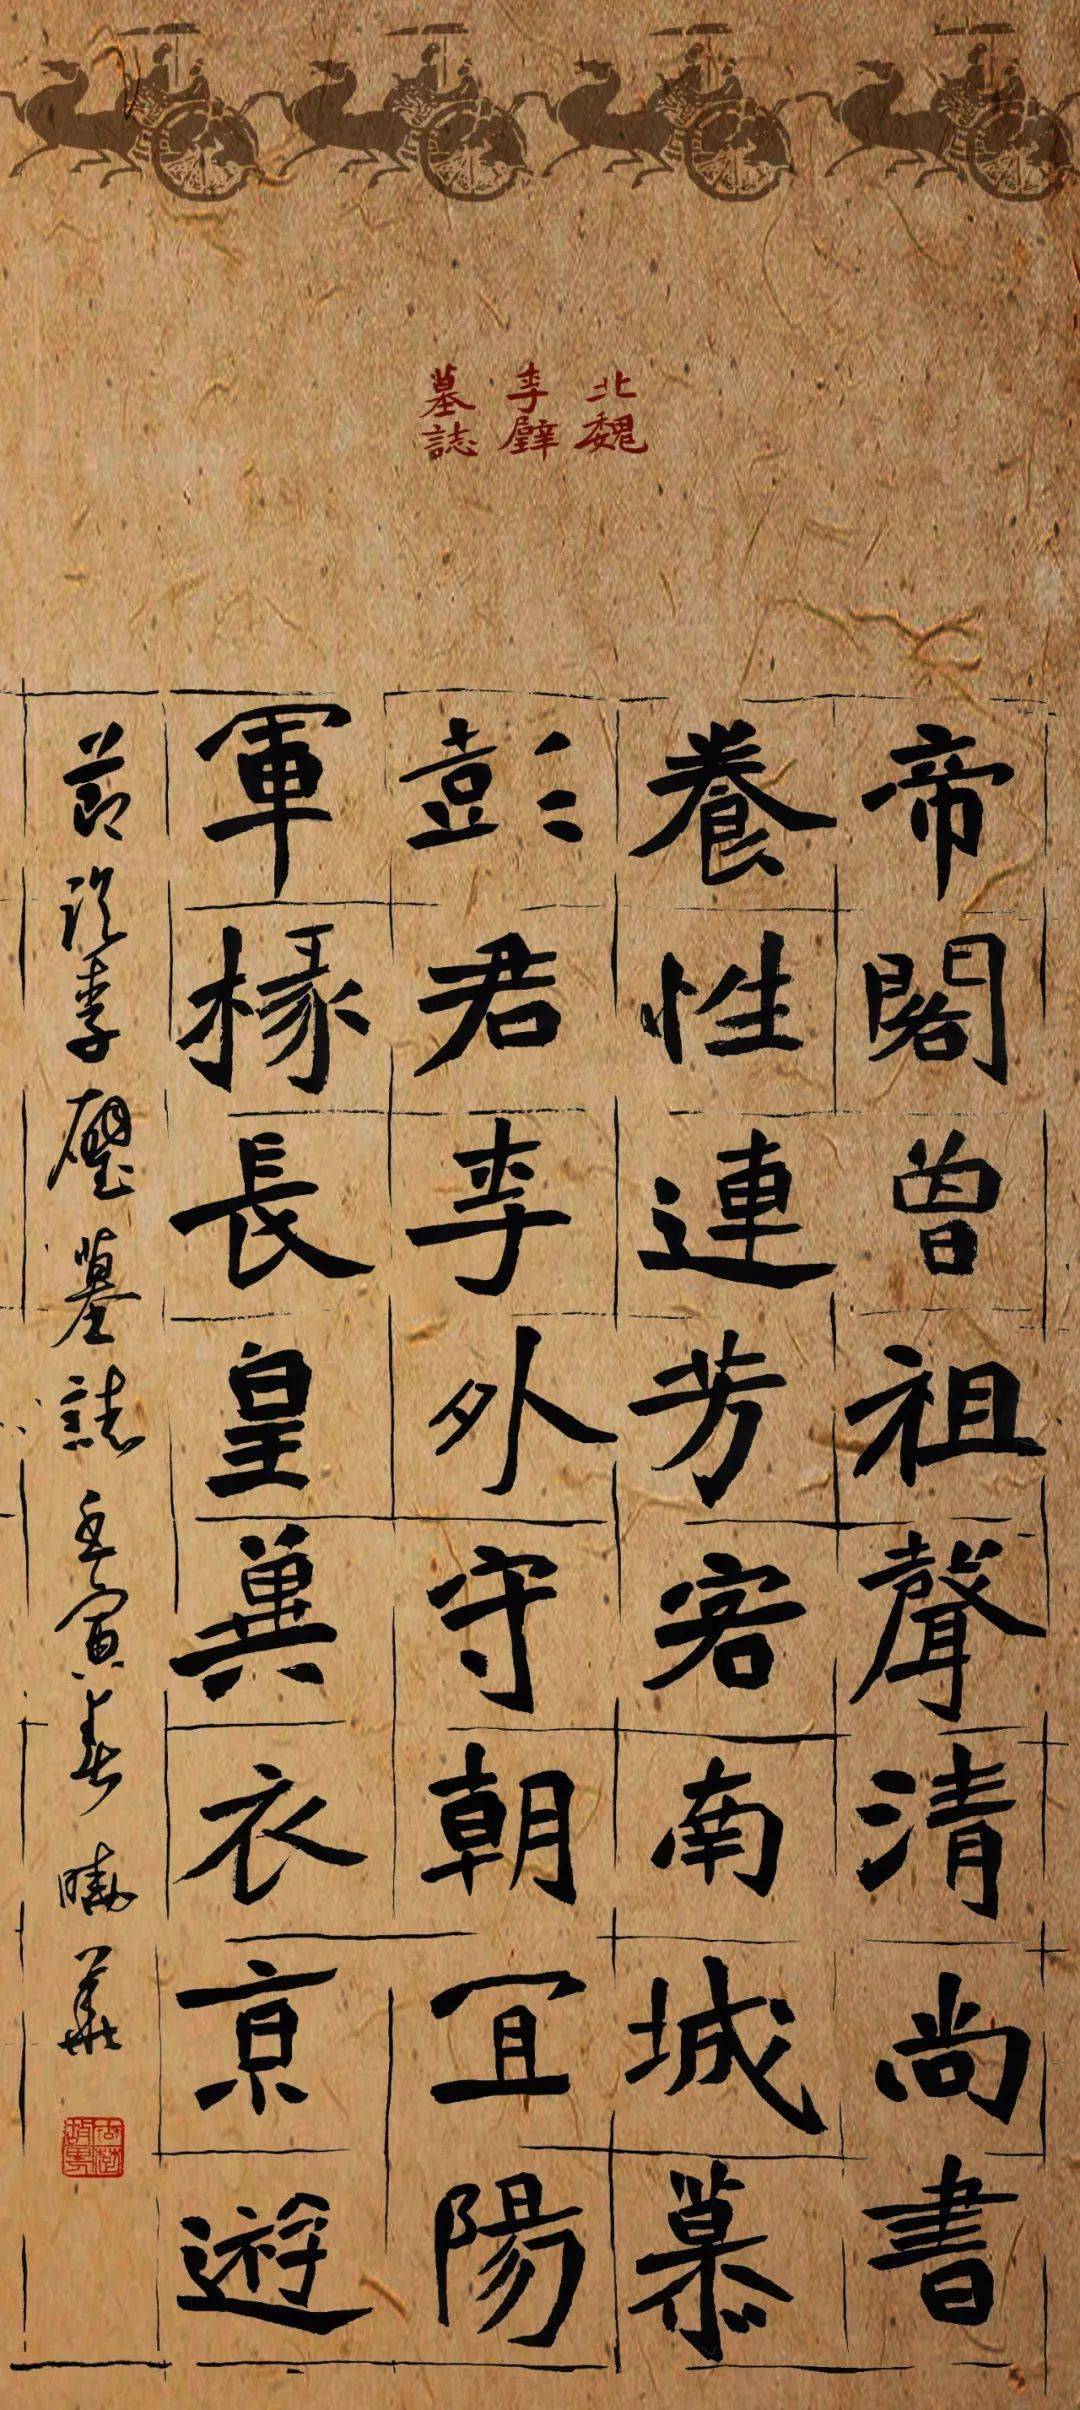 北魏
李璧
墓誌
帝閣曽祖聲清尚書
養性連芳客南城慕
彭君李外守朝宜陽
軍掾長皇冀衣京遊
節臨李璧墓誌壬寅春曉華